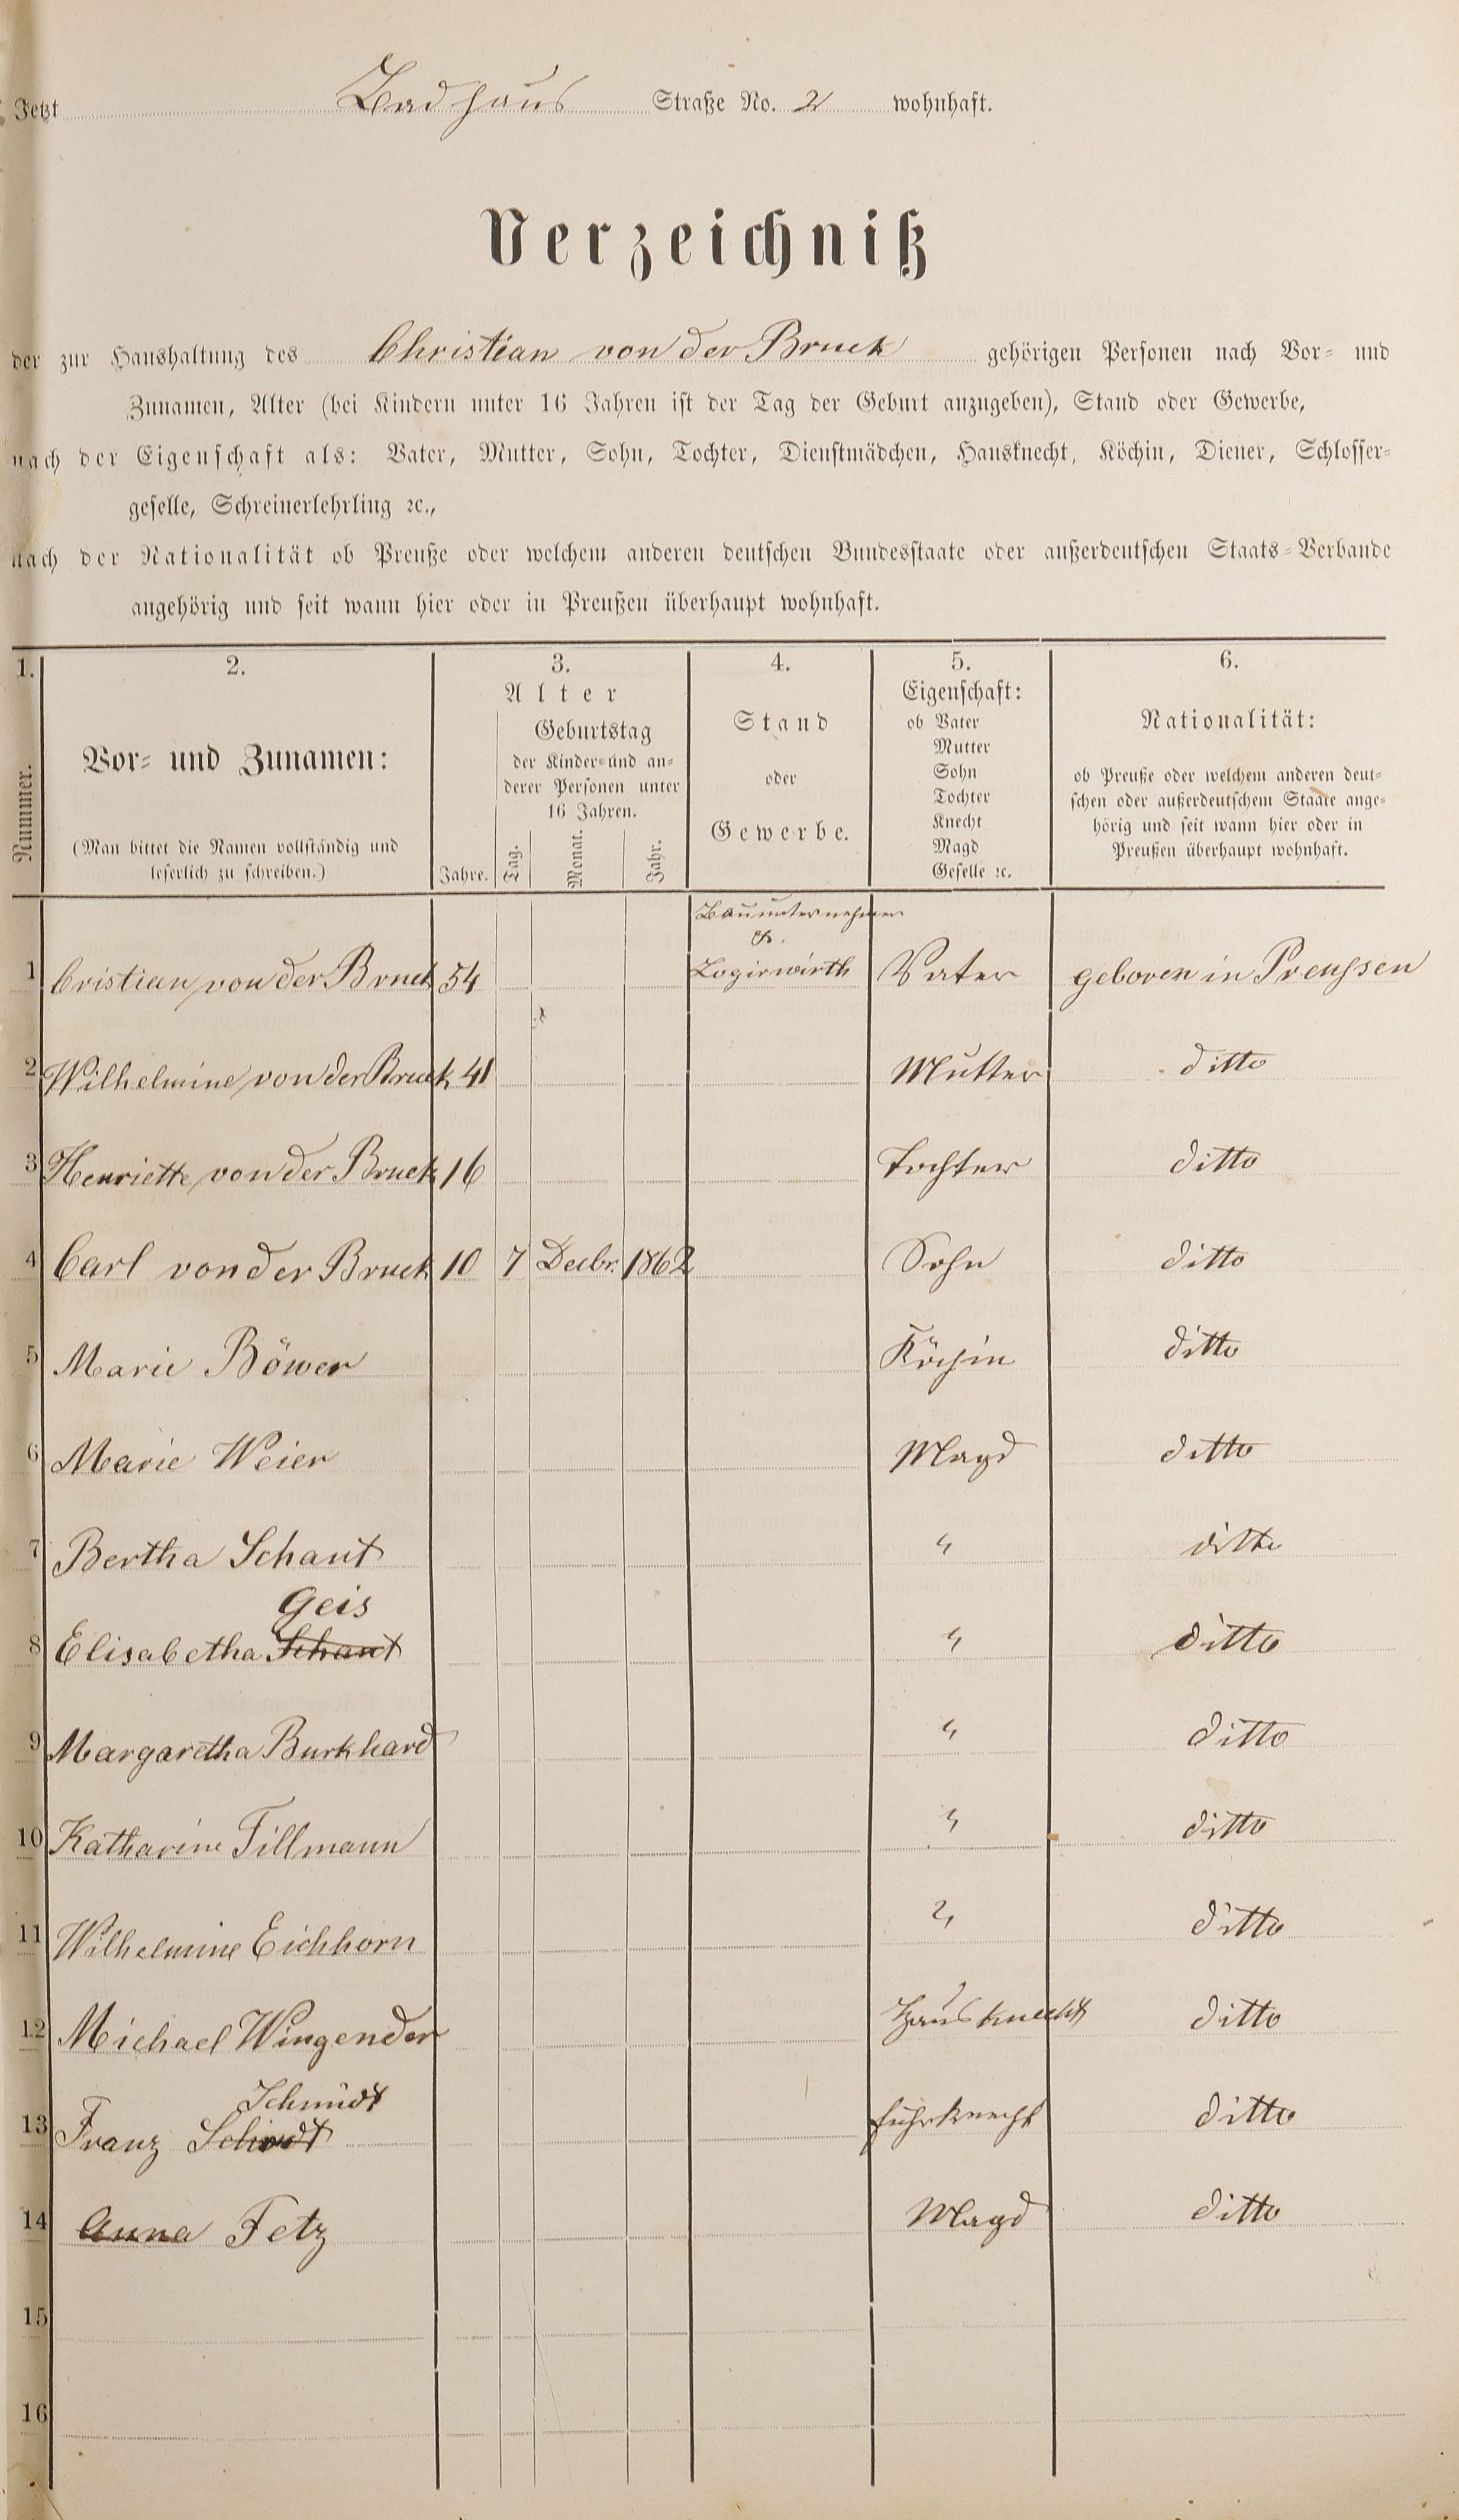 Jetzt Badhaus Straße No. 2 wohnhaft.
Verzeichniß
der zur Haushaltung des Christian von der Bruck gehörigen Personen nach Vor- und
Zunamen, Alter (bei Kindern unter 16 Jahren ist der Tag der Geburt anzugeben), Stand oder Gewerbe,
nach der Eigenschaft als: Vater, Mutter, Sohn, Tochter, Dienstmädchen, Hausknecht, Köchin, Diener, Schlosser-
geselle, Schreinerlehrling ꝛc.,
nach der Nationalität ob Preuße oder welchem anderen deutschen Bundesstaate oder außerdeutschen Staats-Verbande
angehörig und seit wann hier oder in Preußen überhaupt wohnhaft.
1. 2. 3. 4. 5. 6.
Nummer.
Vor- und Zunamen:
(Man bittet die Namen vollständig und
leserlich zu schreiben.)
Alter
Jahre.
Geburtstag
der Kinder und an-
derer Personen unter
16 Jahren.
Tag. Monat. Jahr.
Stand
oder
Gewerbe.
Eigenschaft:
ob Vater
Mutter
Sohn
Tochter
Knecht
Magd
Geselle ꝛc.
Nationalität:
ob Preuße oder welchem anderen deut-
schen oder außerdeutschem Staate ange-
hörig und seit wann hier oder in
Preußen überhaupt wohnhaft.
Bauunternehmer
&.
1 Cristian von der Bruck 54 Logirwirth Vater geboren in Preussen
2 Wilhelmine von der Bruck 41 Mutter ditto
3 Henriette von der Bruck 16 Tochter ditto
4 Carl von der Bruck 10 7 Decbr. 1862 Sohn ditto
5 Marie Böwer Köchin ditto
6 Marie Weier Magd ditto
7 Bertha Schaut " ditto
Geis
8 Elisabetha Schaut " ditto
9 Margaretha Burkhard " ditto
10 Katharine Tillmann " ditto
11 Wilhelmine Eichhorn " ditto
12 Michael Wingender Hausknecht ditto
Schmidt
13 Franz Schmidt Fuhrknecht ditto
14 Anna Fetz Magd ditto
15
16